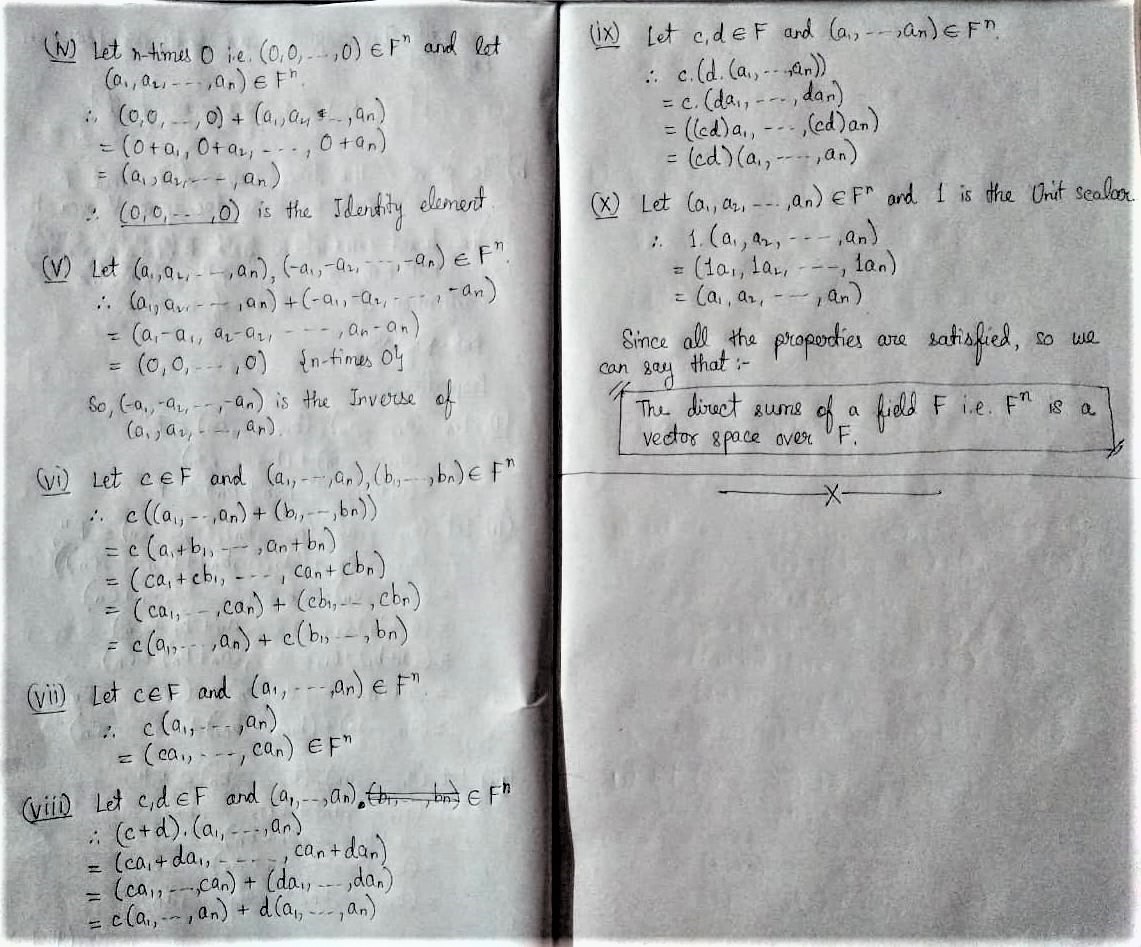 (iv) Let n-times 0 i.e. (0,0,---,0) ∈ Fⁿ and let
(a₁,a₂,----,aₙ) ∈ Fⁿ.
∴ (0,0,---,0) + (a₁,a₂,---,aₙ)
= (0+a₁, 0+a₂, ----, 0+aₙ)
= (a₁,a₂,---,aₙ)
∴ (0,0,---,0) is the Identity element.
(v) Let (a₁,a₂,---,aₙ), (-a₁,-a₂,---,-aₙ) ∈ Fⁿ.
∴ (a₁,a₂,---,aₙ) + (-a₁,-a₂,---,-aₙ)
= (a₁-a₁, a₂-a₂, ----, aₙ-aₙ)
= (0,0,---,0) {n-times 0}
So, (-a₁,-a₂,---,-aₙ) is the Inverse of
(a₁,a₂,---,aₙ).
(vi) Let c∈F and (a₁,---,aₙ),(b₁,---,bₙ) ∈ Fⁿ
∴ c((a₁,---,aₙ) + (b₁,---,bₙ))
= c(a₁+b₁,---,aₙ+bₙ)
= (ca₁+cb₁, ----, caₙ+cbₙ)
= (ca₁,---,caₙ) + (cb₁,---,cbₙ)
= c(a₁,---,aₙ) + c(b₁,---,bₙ)
(vii) Let c∈F and (a₁,---,aₙ) ∈ Fⁿ
∴ c(a₁,---,aₙ)
= (ca₁,----,caₙ) ∈ Fⁿ
(viii) Let c,d∈F and (a₁,---,aₙ), (b₁,---,bₙ) ∈ Fⁿ
∴ (c+d).(a₁,---,aₙ)
= (ca₁+da₁, ----, caₙ+daₙ)
= (ca₁,---,caₙ) + (da₁,---,daₙ)
= c(a₁,---,aₙ) + d(a₁,---,aₙ)
(ix) Let c,d∈F and (a₁,---,aₙ) ∈ Fⁿ.
∴ c.(d.(a₁,---,aₙ))
= c.(da₁,----,daₙ)
= ((cd)a₁, ----,(cd)aₙ)
= (cd)(a₁,----,aₙ)
(x) Let (a₁,a₂,---,aₙ) ∈ Fⁿ and 1 is the Unit scalar.
∴ 1.(a₁,a₂,----,aₙ)
= (1a₁, 1a₂, ----, 1aₙ)
= (a₁,a₂,---,aₙ)
Since all the properties are satisfied, so we
can say that :-
The direct sums of a field F i.e. Fⁿ is a
vector space over F.